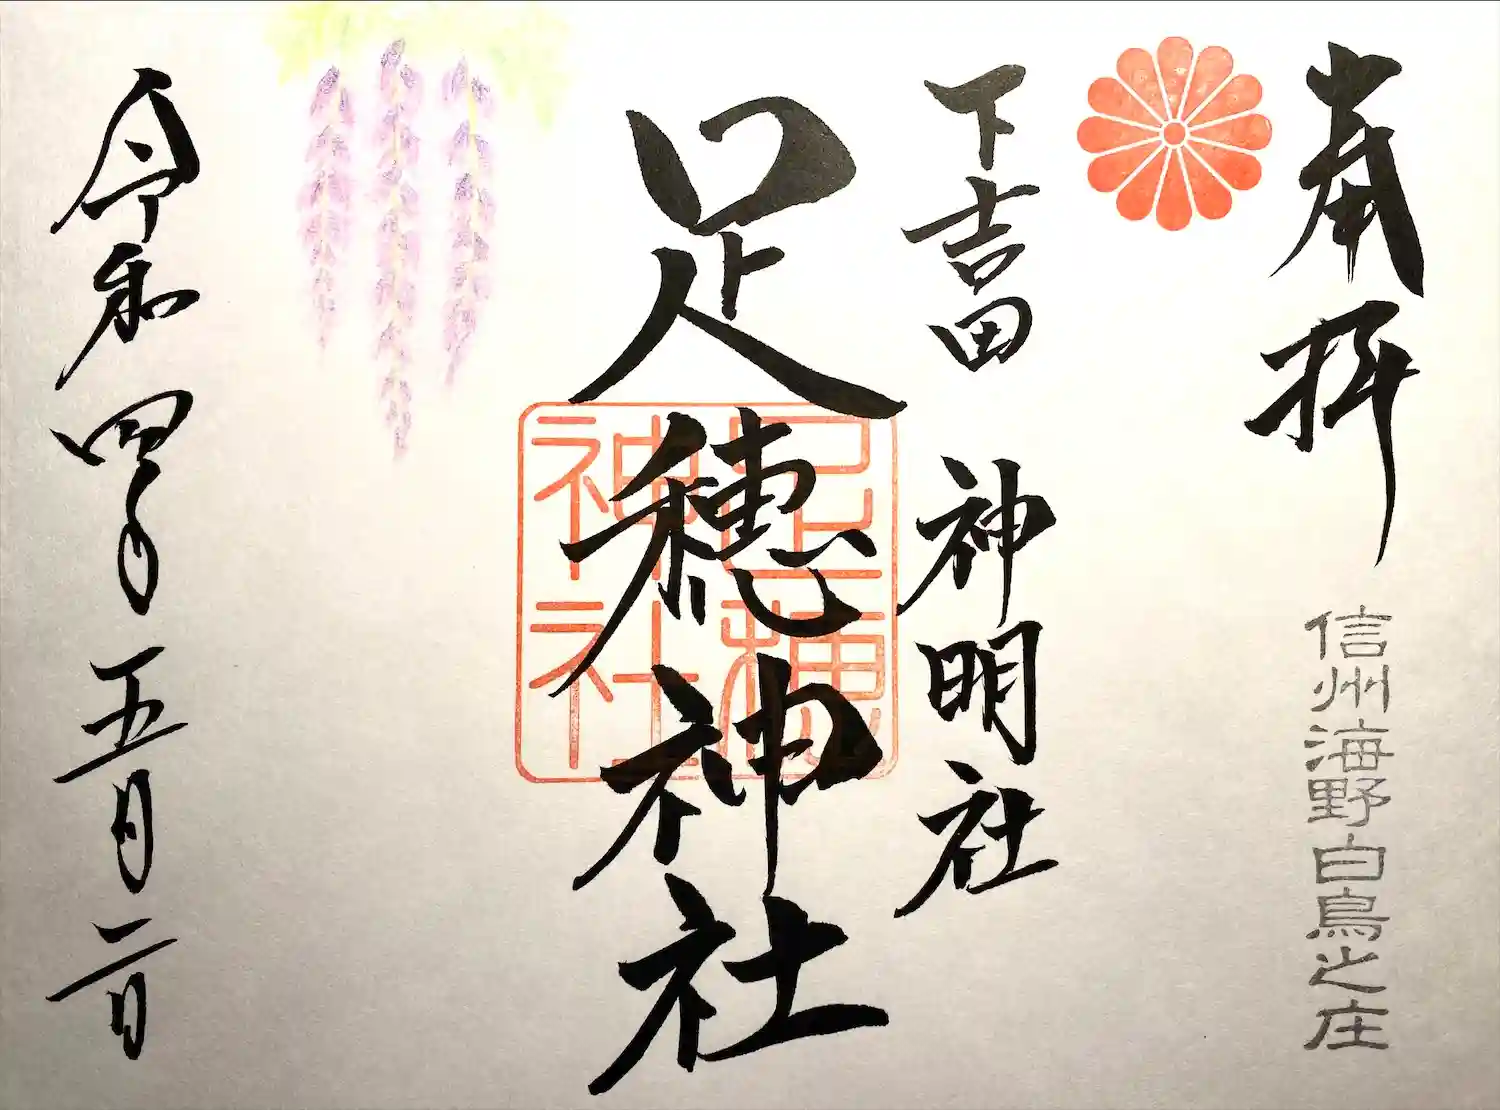 奉拝
信州海野白鳥之庄
下吉田 神明社
足穂神社
足穂神社
令和四年五月二日